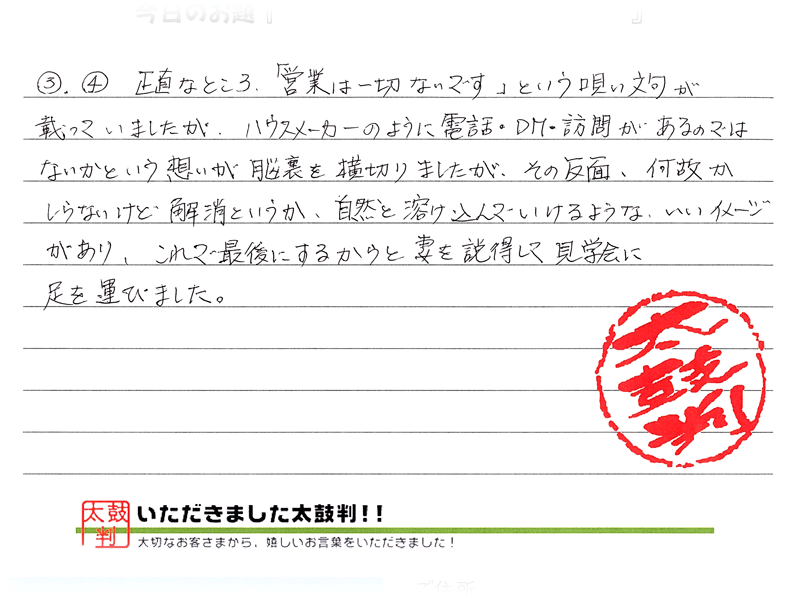 今日のお題『　　　　　』
③.④　正直なところ、「営業は一切ないです」という唄い文句が
載っていましたが、ハウスメーカーのように電話・DM・訪問があるのでは
ないかという想いが脳裏を横切りましたが、その反面、何故か
しらないけど解消というか、自然と溶け込んでいけるような、いいイメージ
があり、これで最後にするからと妻を説得して見学会に
足を運びました。
太鼓判
太鼓判 いただきました太鼓判!!
大切なお客さまから、嬉しいお言葉をいただきました!
ご住所